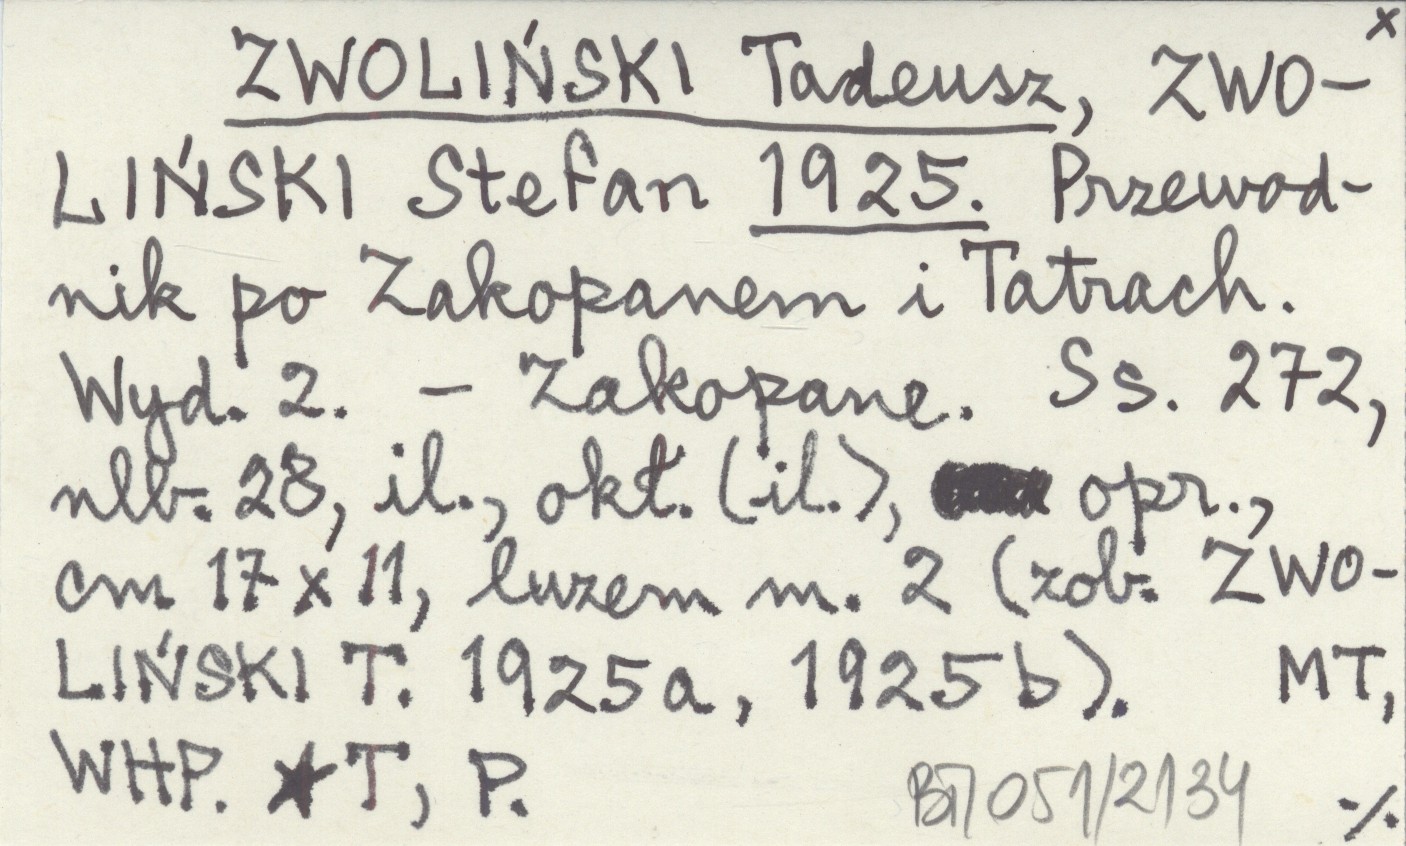 x
ZWOLIŃSKI Tadeusz, ZWO-
LIŃSKI Stefan 1925. Przewod-
nik po Zakopanem i Tatrach.
Wyd. 2. - Zakopane. Ss. 272,
nlb. 28, il., okł. (il.), opr.,
cm 17 x 11, luzem m. 2 (zob. ZWO-
LIŃSKI T. 1925a, 1925b). MT,
WHP. ★T, P.
051/2134 ·/.